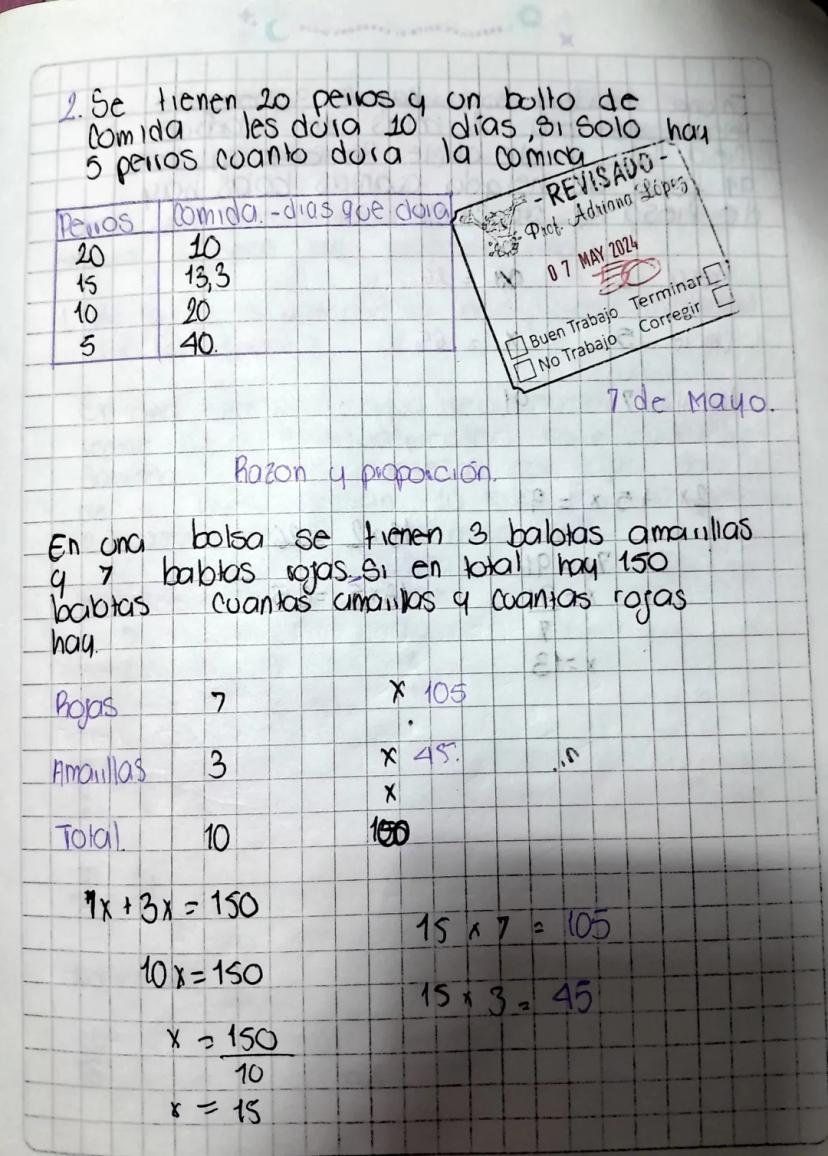 2. Se tienen 20 perros y un bulto de
comida les dura 10 días, si solo hay
5 perros cuanto dura la comida
Perros comida - dias que dura
20 10
15 13,3
10 20
5 40.
- REVISADO -
Prof. Adriana López
07 MAY 2024
Buen Trabajo Terminar
No Trabajo Corregir
7 de Mayo.
Razon y proporción.
En una bolsa se tienen 3 balotas amarillas
y 7 balotas rojas. Si en total hay 150
balotas cuantas amarillas y cuantas rojas
hay.
Rojas 7 x 105
Amarillas 3 x 45.
x
Total. 10 150
7x + 3x = 150
10x = 150
x = 150
10
x = 15
15 x 7 = 105
15 x 3 = 45